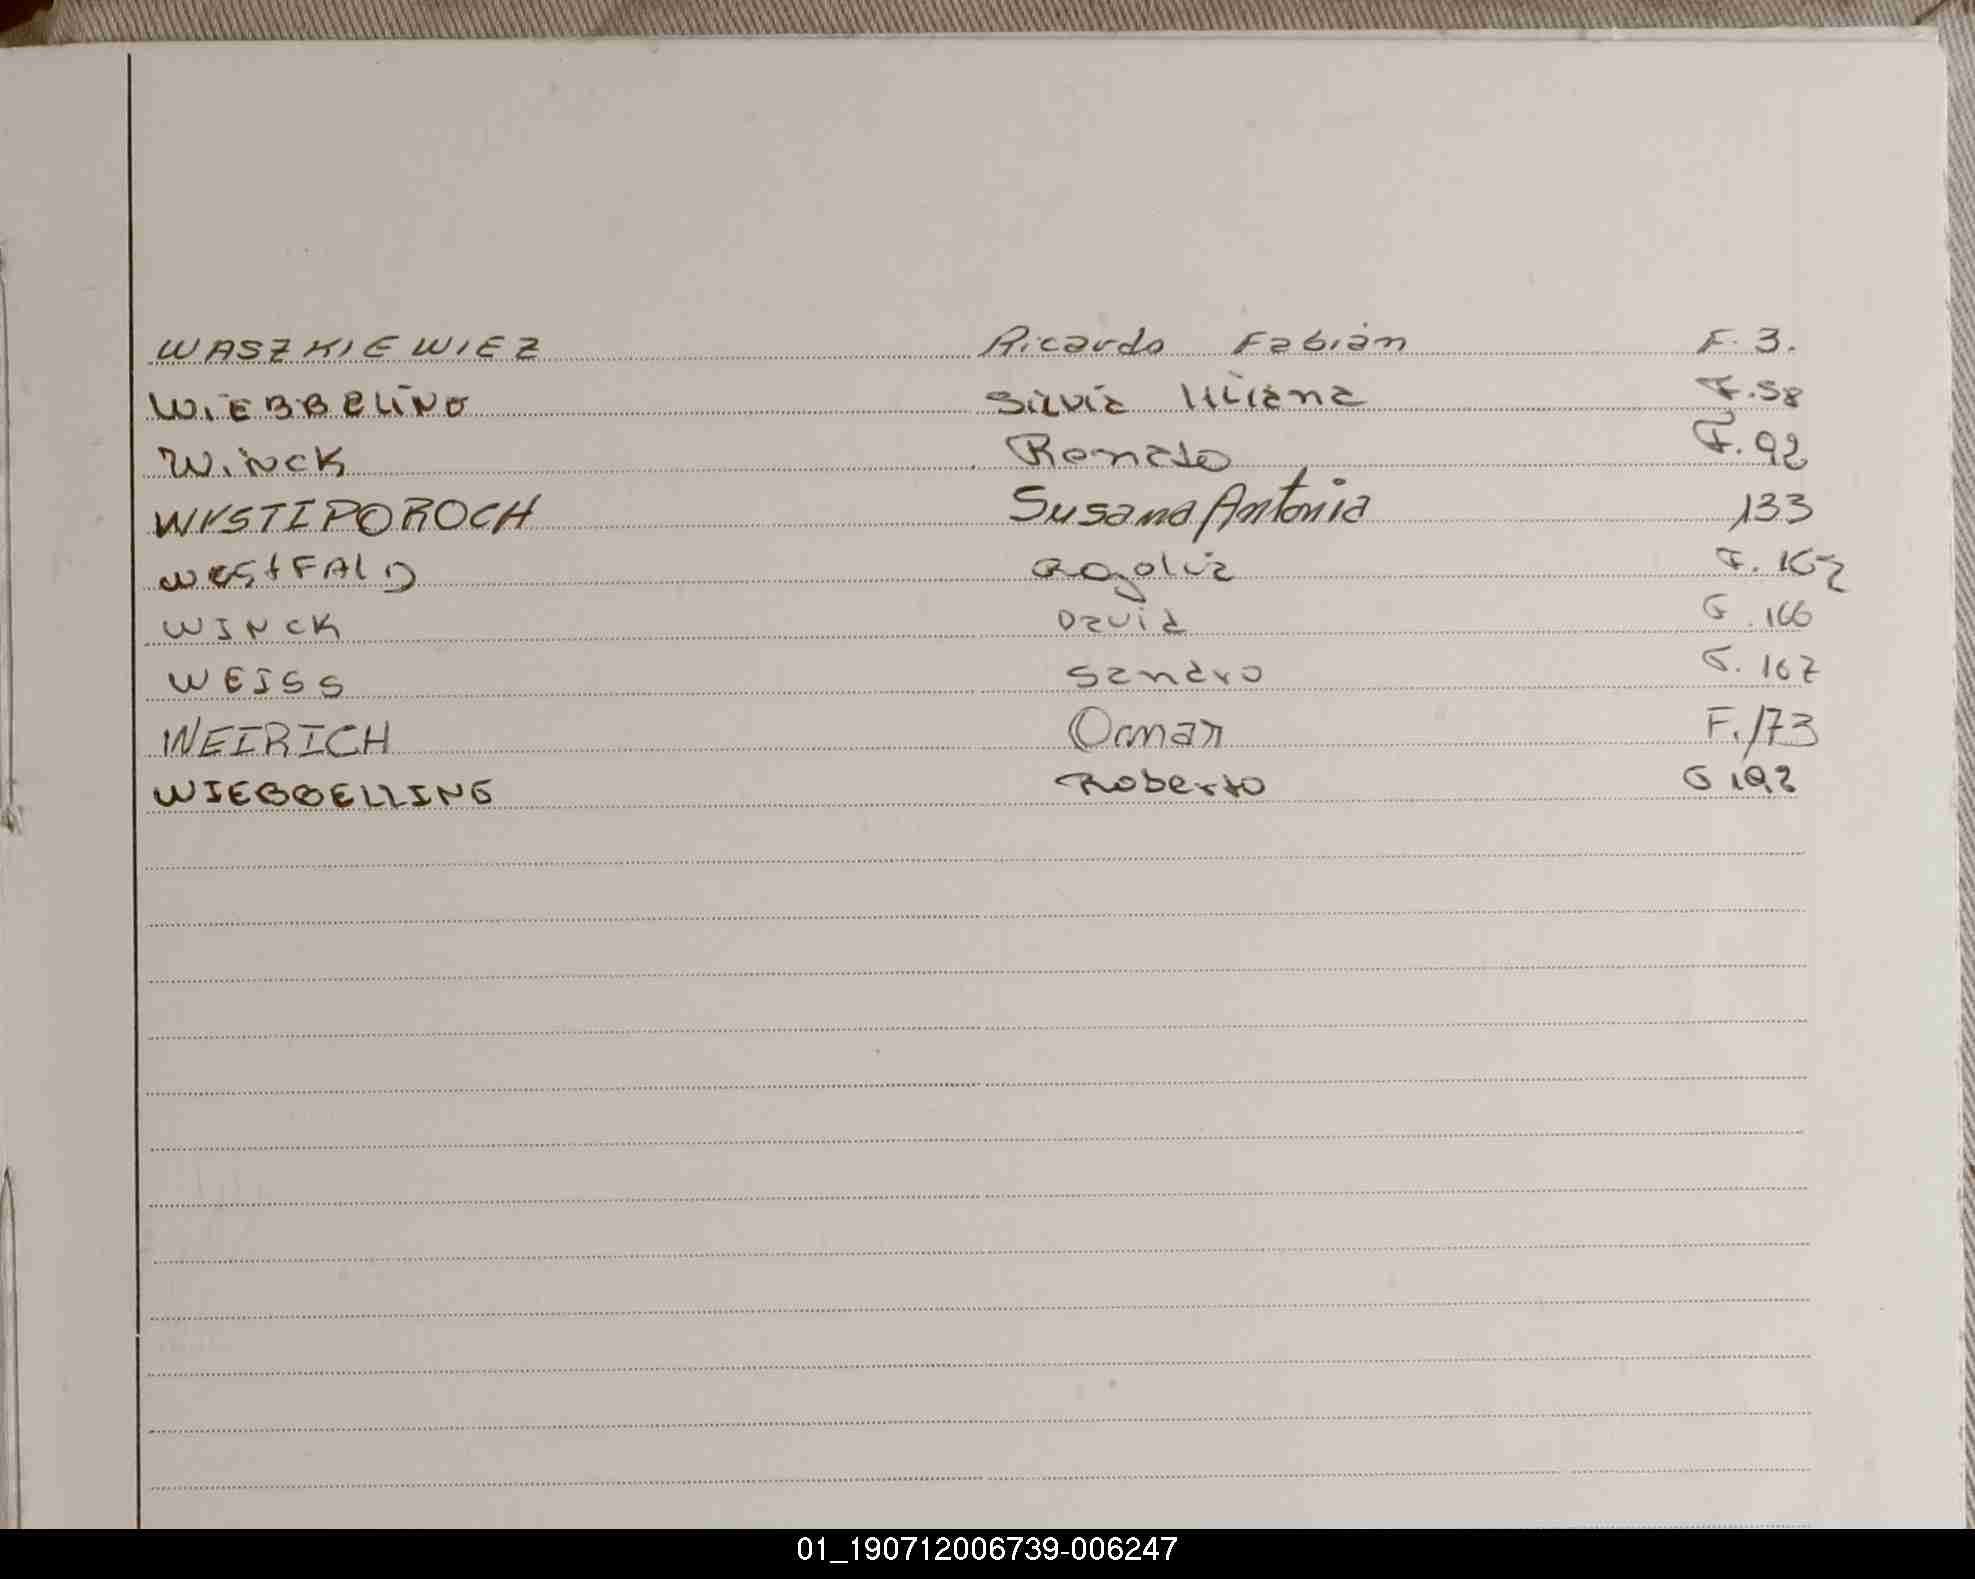 WASZKIEWIEZ Ricardo Fabián F. 3.
WIEBBELING Silvia Liliana F. 58
WINCK Renato F. 92
WYSTIPOROCH Susana Antonia 133
WESTFALD F. 162
WINCK David G. 166
WEISS Sandro G. 167
WEIRICH Omar F. 173
WIEBBELLING Roberto G 192
01_190712006739-006247